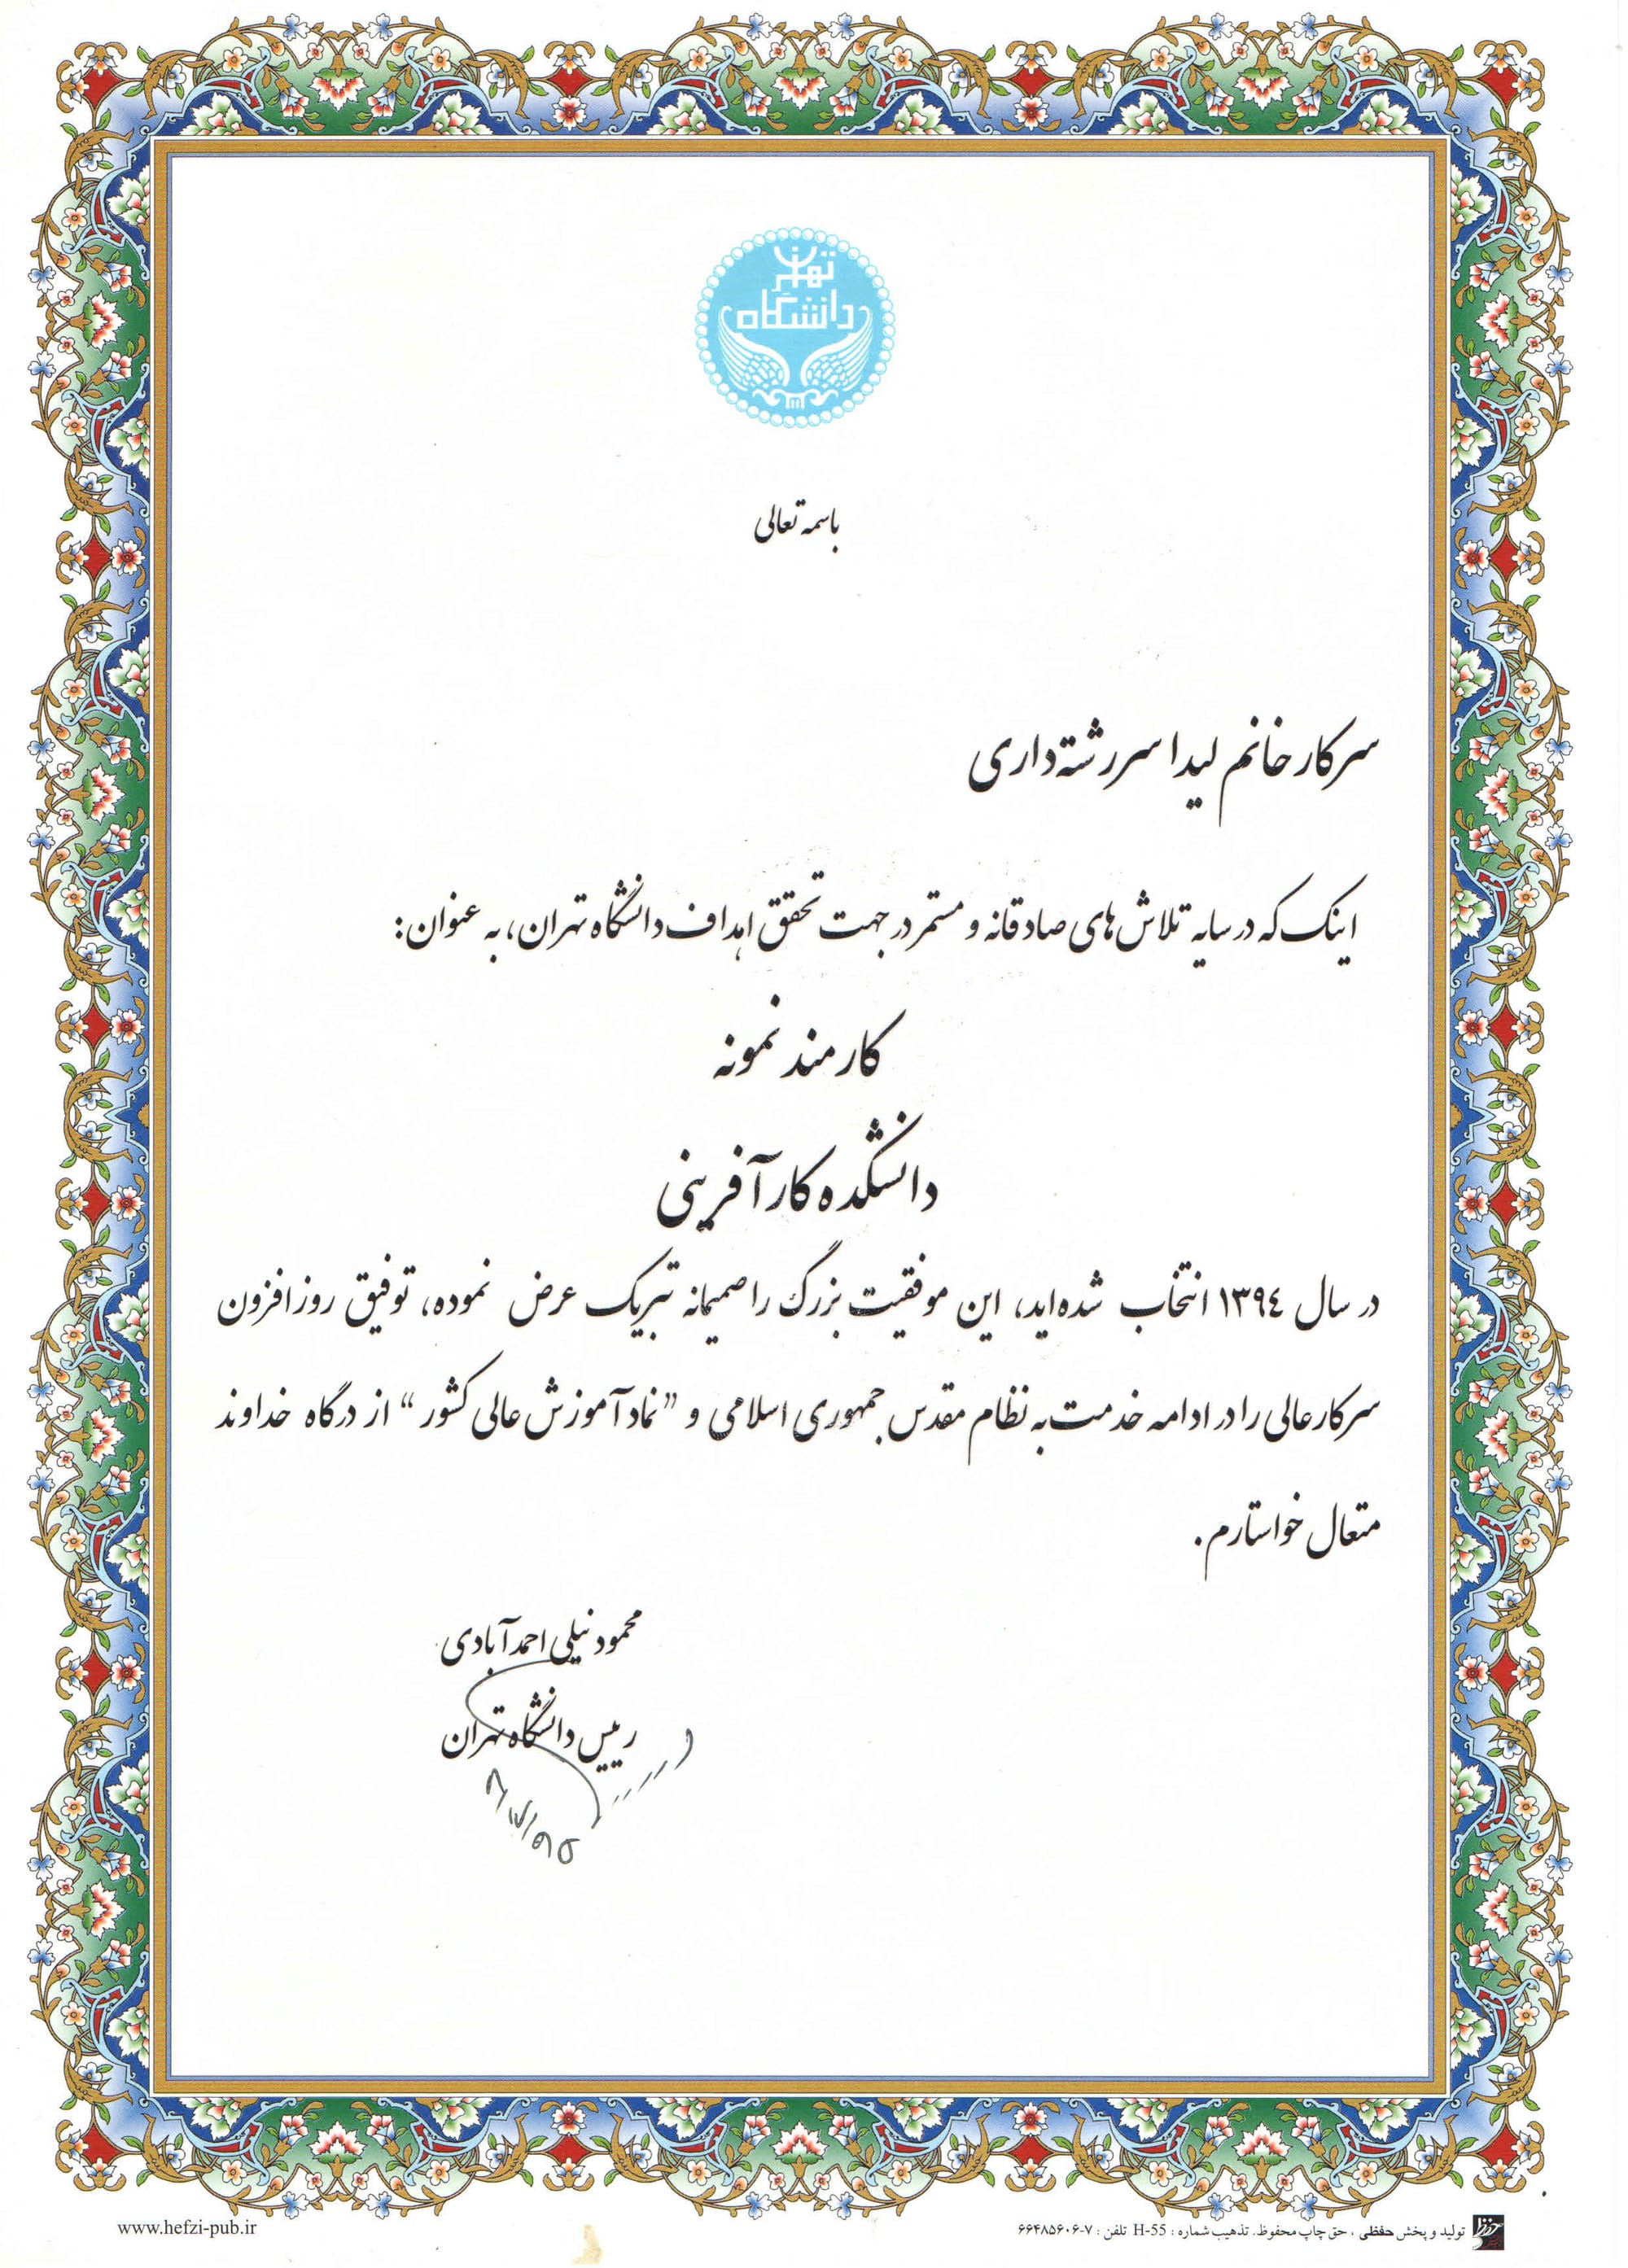 تهران
دانشگاه
باسمه تعالی
سرکار خانم لیدا سررشته‌داری
اینک که در سایه تلاش‌های صادقانه و مستمر در جهت تحقق اهداف دانشگاه تهران، به عنوان:
کارمند نمونه
دانشکده کارآفرینی
در سال ۱۳۹۴ انتخاب شده‌اید، این موفقیت بزرگ را صمیمانه تبریک عرض نموده، توفیق روزافزون
سرکارعالی را در ادامه خدمت به نظام مقدس جمهوری اسلامی و "نماد آموزش عالی کشور" از درگاه خداوند
متعال خواستارم.
محمود نیلی احمدآبادی
رییس دانشگاه تهران
www.hefzi-pub.ir
تولید و پخش حفظی ، حق چاپ محفوظ. تذهیب شماره : H-55 تلفن : ۷-۶۶۴۸۵۶۰۶